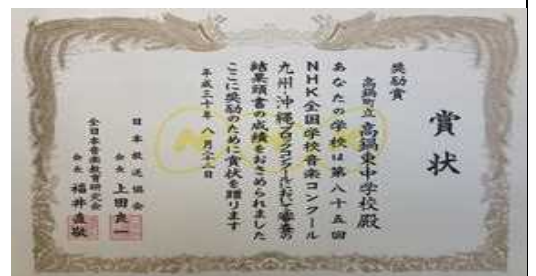 賞状
奨励賞
高鍋町立 高鍋東中学校殿
あなたの学校は第八十五回
NHK全国学校音楽コンクール
九州・沖縄ブロックコンクールにおいて審査の
結果頭書の成績をおさめられました
ここに奨励のために賞状を贈ります
平成三十年 八月二十六日
日本放送協会
会長 上田良一
全日本音楽教育研究会
会長 福井直敬